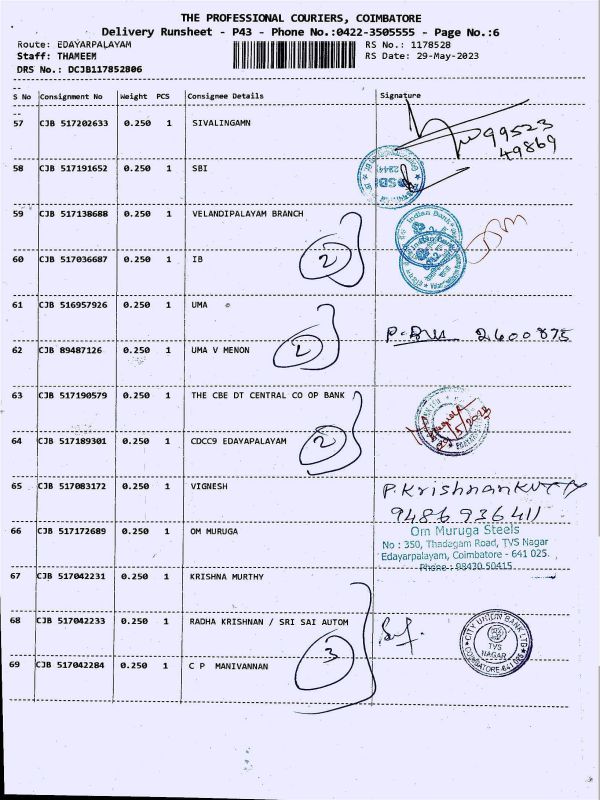 THE PROFESSIONAL COURIERS, COIMBATORE
Delivery Runsheet - P43 - Phone No.:0422-3505555 - Page No.:6
Route: EDAYARPALAYAM
RS No.: 1178528
Staff: THAMEEM
RS Date: 29-May-2023
DRS No.: DCJB117852806
S No Consignment No Weight PCS Consignee Details Signature
57 CJB 517202633 0.250 1 SIVALINGAMN
99523
49869
58 CJB 517191652 0.250 1 SBI
SBI
59 CJB 517138688 0.250 1 VELANDIPALAYAM BRANCH
Indian Bank
2
60 CJB 517036687 0.250 1 IB
Indian Bank
61 CJB 516957926 0.250 1 UMA
2600875
2
62 CJB 89487126 0.250 1 UMA V MENON
63 CJB 517190579 0.250 1 THE CBE DT CENTRAL CO OP BANK
2
64 CJB 517189301 0.250 1 CDCC9 EDAYAPALAYAM
65 CJB 517083172 0.250 1 VIGNESH
P.Krishnankutty
9486936411
66 CJB 517172689 0.250 1 OM MURUGA
Om Muruga Steels
No : 350, Thadagam Road, TVS Nagar
Edayarpalayam, Coimbatore - 641 025.
Phone : 98430 50415
67 CJB 517042231 0.250 1 KRISHNA MURTHY
68 CJB 517042233 0.250 1 RADHA KRISHNAN / SRI SAI AUTOM
CITY UNION BANK LTD
TVS
NAGAR
COIMBATORE-641 025
3
69 CJB 517042284 0.250 1 C P MANIVANNAN